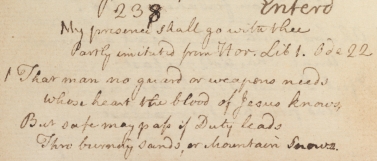 238 Enterd
My presence shall go with thee
Partly imitated from Hor. Lib 1. Ode 22
1 That man no guerd or weapons needs
Whose heart the blood of Jesus knows,
But safe may pass if Duty leads
Thro burning sands, or Mountain Snows.